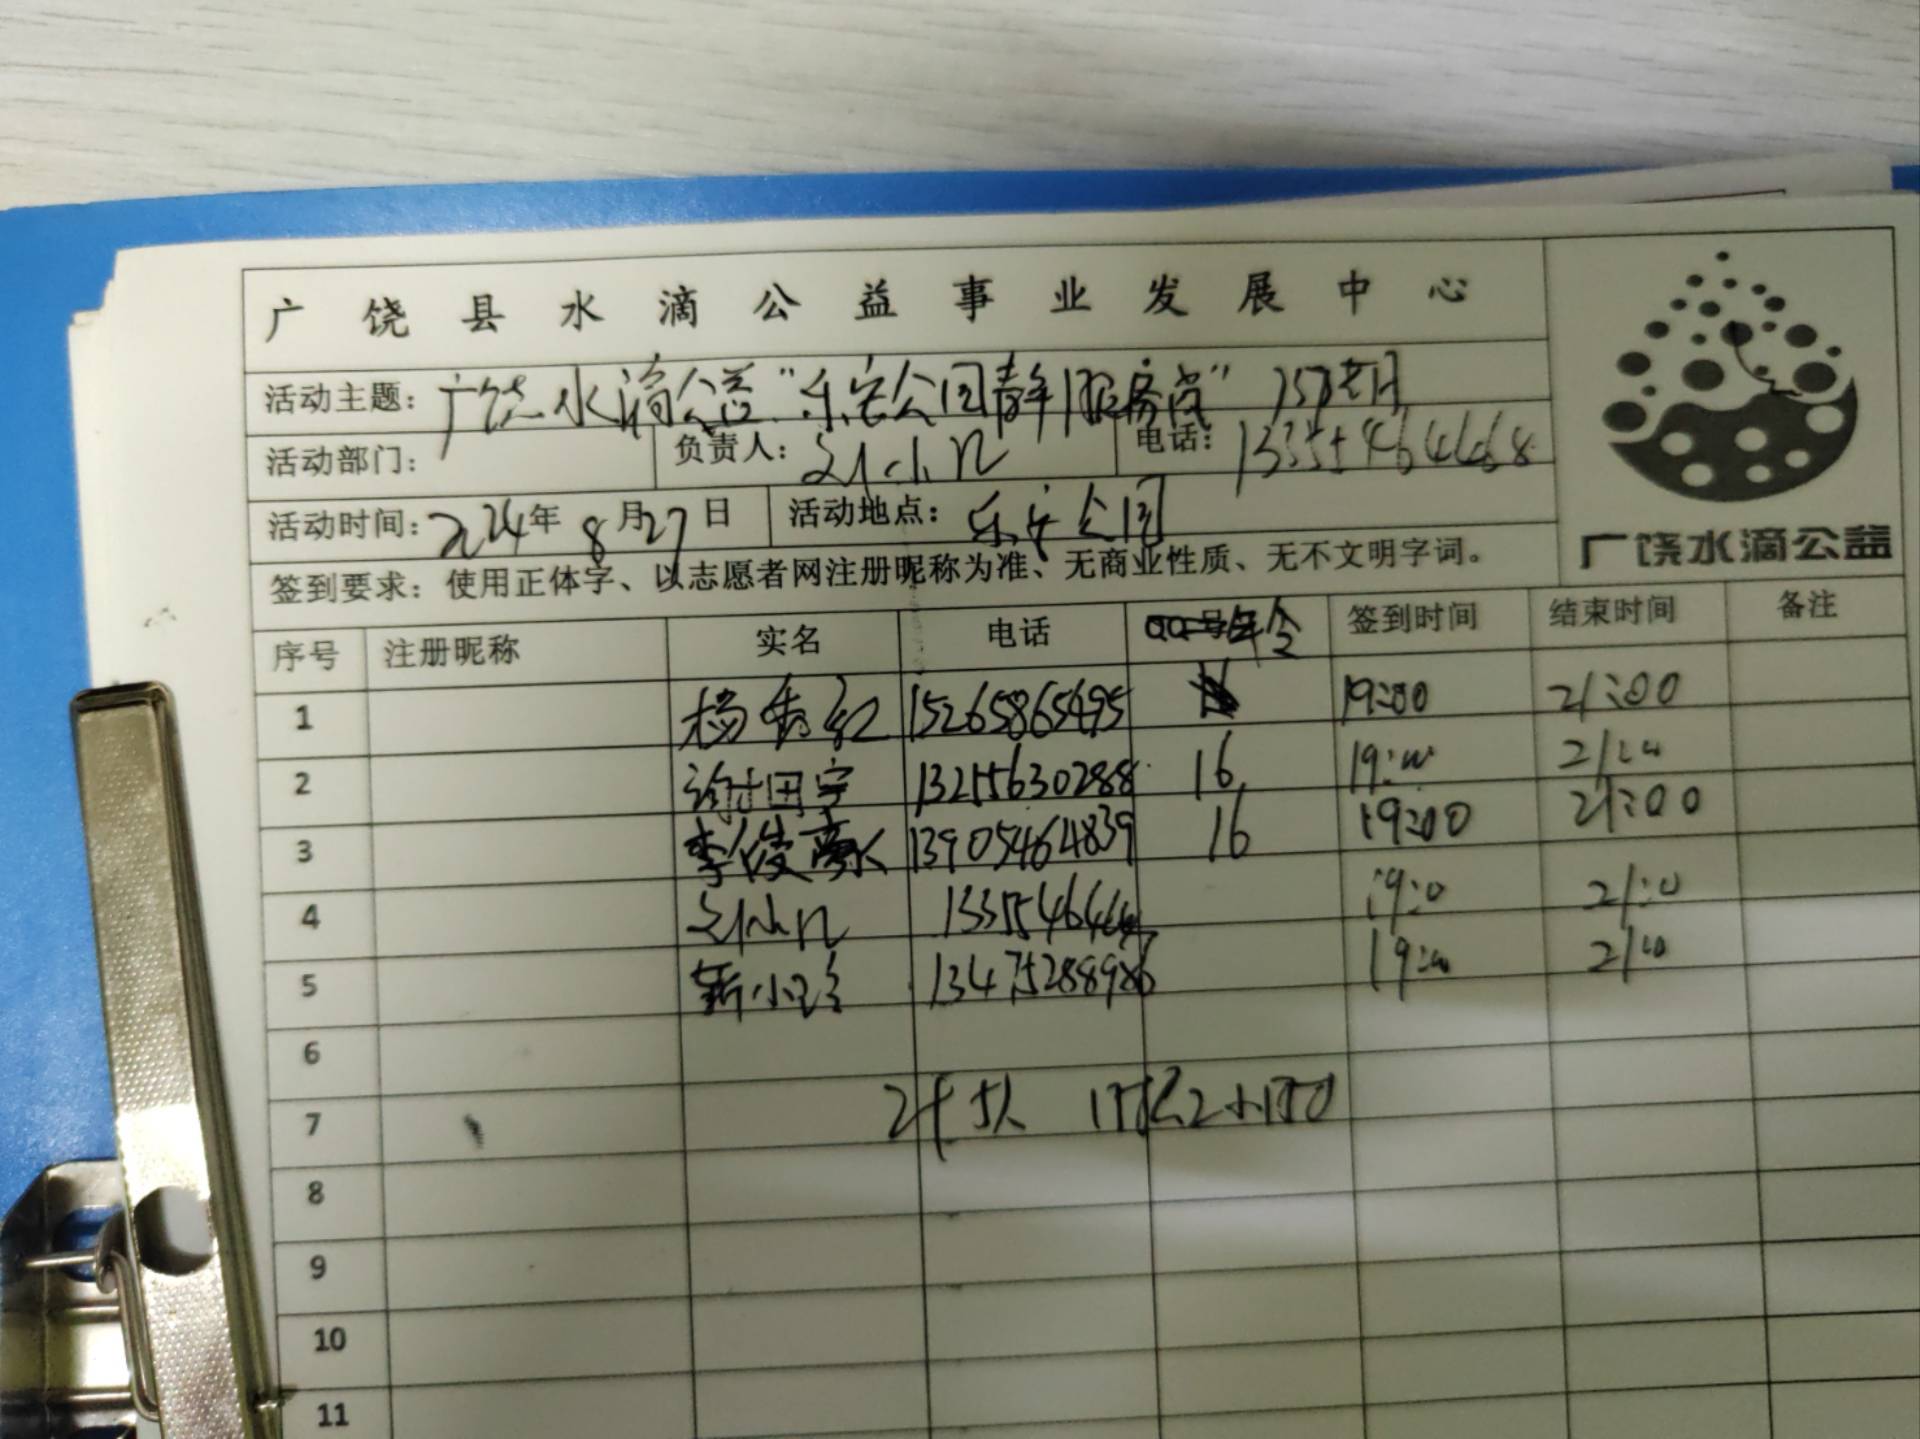 广饶县水滴公益事业发展中心
活动主题：广饶水滴公益"乐安公园青年服务岗"
活动部门： 负责人： 电话：
活动时间：2024年 8月27日 活动地点：乐安公园
广饶水滴公益
签到要求：使用正体字、以志愿者网注册昵称为准、无商业性质、无不文明字词。
序号 注册昵称 实名 电话 年令 签到时间 结束时间 备注
1 杨秀红 15265865495 19:00 21:00
2 谢田宇 13215630288 16 19:00 21:00
3 李俊豪 13905464839 16 19:00 21:00
4 19:0 21:0
5 靳小玲 13475288986 19:00 21:00
6
7
8
9
10
11